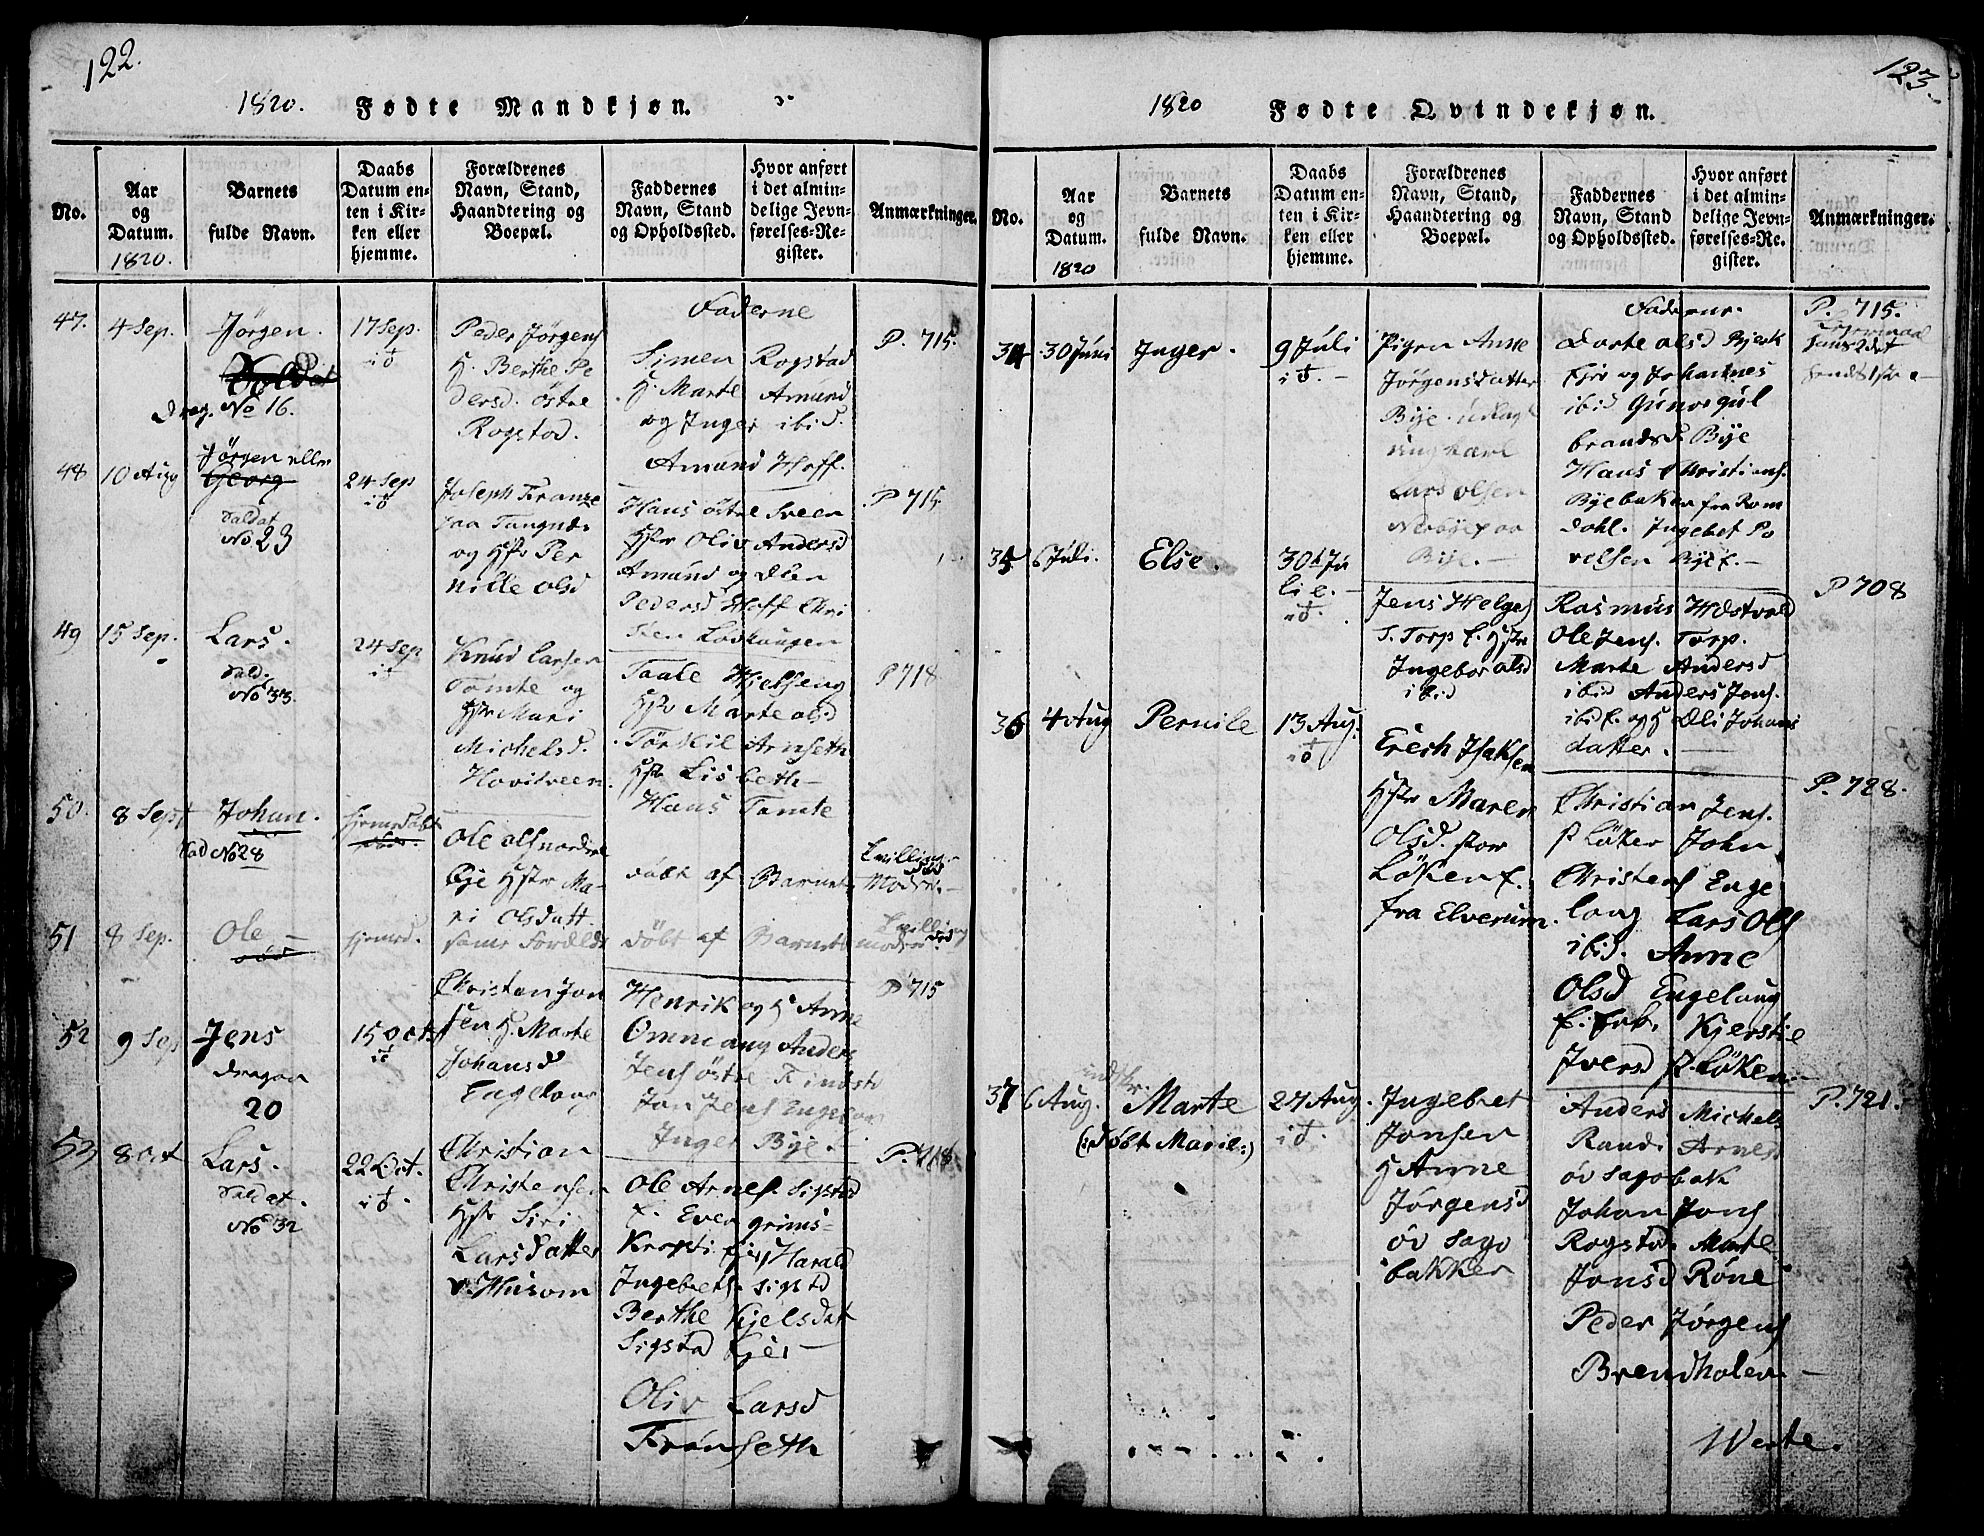 122.
1820. Fødte Mandkjøn.
No.
Aar og Datum. 1820.
Barnets fulde Navn.
Daabs Datum enten i Kirken eller hjemme.
Forældrenes Navn, Stand, Haandtering og Boepæl.
Faddernes Navn, Stand og Opholdssted.
Hvor anført i det almindelige Jevnførelses-Register.
Anmærkninger.
47. 4 Sep. Jörgen. 17 Sep.
Drag. No 16.
Peder Jörgens
H. Berthe Pe
dersd. östre
Rogstad.
Faderne
Simen Rogstad
H. Marte Amund
og Inger ibid.
Amund Hoff.
P. 715.
48 10 Aug Jörgen eller
Georg
Saldat
No 23
24 Sep
Joseph Franze
og Hstr Per
nille olsd
Hans östre Sveen
Hstr Oliv Andersd
Amund og Olen
Pedersd Hoff Chri
P 715
49 15 Sep. Lars.
Sald.
No 33.
24 Sep
Knud Larsen
Tomte og
Hstr Mari
Michelsd.
Hovitveen
Taale Hielseng
Hstr Marte olsd
Törkil Arnseth
Hstr Lisbeth
Hans Tomte
P 718
50. 8 Sept Johan.
Sad No 28
Ole ols nordre
Bye Hstr Ma-
ri Olsdatt.
döbt af Barnet
51 8 Sep. Ole
död
hjemd.
samr Foreldr
döbt af Barnet
52 9 Sep Jens
Dragon
20
15 Octr
Christen Jon
sen H. Marte
Johansd
Engelaug
Henrik og H Anne
Ommang Anders
Jens östre Findst
Jon Jens Engelau
Inger Bye
P 715
53 8 Oct Lars.
Saldat.
No 32
22 Oct.
Christian
Christensen
Hstr Siri
Larsdatter
v. Husom
Ole Arnes. Sigstad
Even Grims-
Harald
Ingebrets. Sigstd
Berthe Kjelsdat
Sigstad Ejer
Oliv Larsd
Frönseth
P. 718
123.
1820 Fødte Qvindekjøn.
No.
Aar og Datum. 1820
Barnets fulde Navn.
Daabs Datum enten i Kirken eller hjemme.
Forældrenes Navn, Stand, Haandtering og Boepæl.
Faddernes Navn, Stand og Opholdssted.
Hvor anført i det almindelige Jevnførelses-Register.
Anmærkninger.
34 30 Juni Inger. 9 Juli
Pigen Anne
Jörgensdatter
Bye. udlagt
ungkarl
Lars Olsen
Bye.
Faderne.
Dorte olsd Bjerk
og Johannes
ibid Gunor Gul
brandsd Bye
Hans Christians.
Byebaken fra Rom
dahl. Ingebet Po
velsen Bye f.
P. 715.
35 6 Juli. Else. 30 Ju
li
Jens Helges
S. Torp f. Hstr
Ingebor olsd
ibid
Rasmus Westvold
Ole Jens. Torp.
Marte Andersd
ibid Anders Jens.
ibid f. og H Oli Johans
datter.
P 708
36 4 Aug Pernile 13 Aug.
Erich Isaksen
Hstr Maren
Olsd. stor
Löken f.
fra Elverum.
Christian Jens.
st Löken John
Christens Enge
laug Lars Ols
ibid. Anne
Olsd Engelaug
Kjerstie
Iversd st. Löken
P. 728.
37 6 Aug. Marte
(: döbt Marie:)
27 Aug.
Ingebret
Jonsen
H Anne
Jörgensd
öv Sago
bakken
Anders Michels
Randi Arnesd
öv Sagobak
Johan Jons
Rogstad. Marte
Jonsd Röne
Peder Jörgens
Brendholen
P. 721.
Werte.